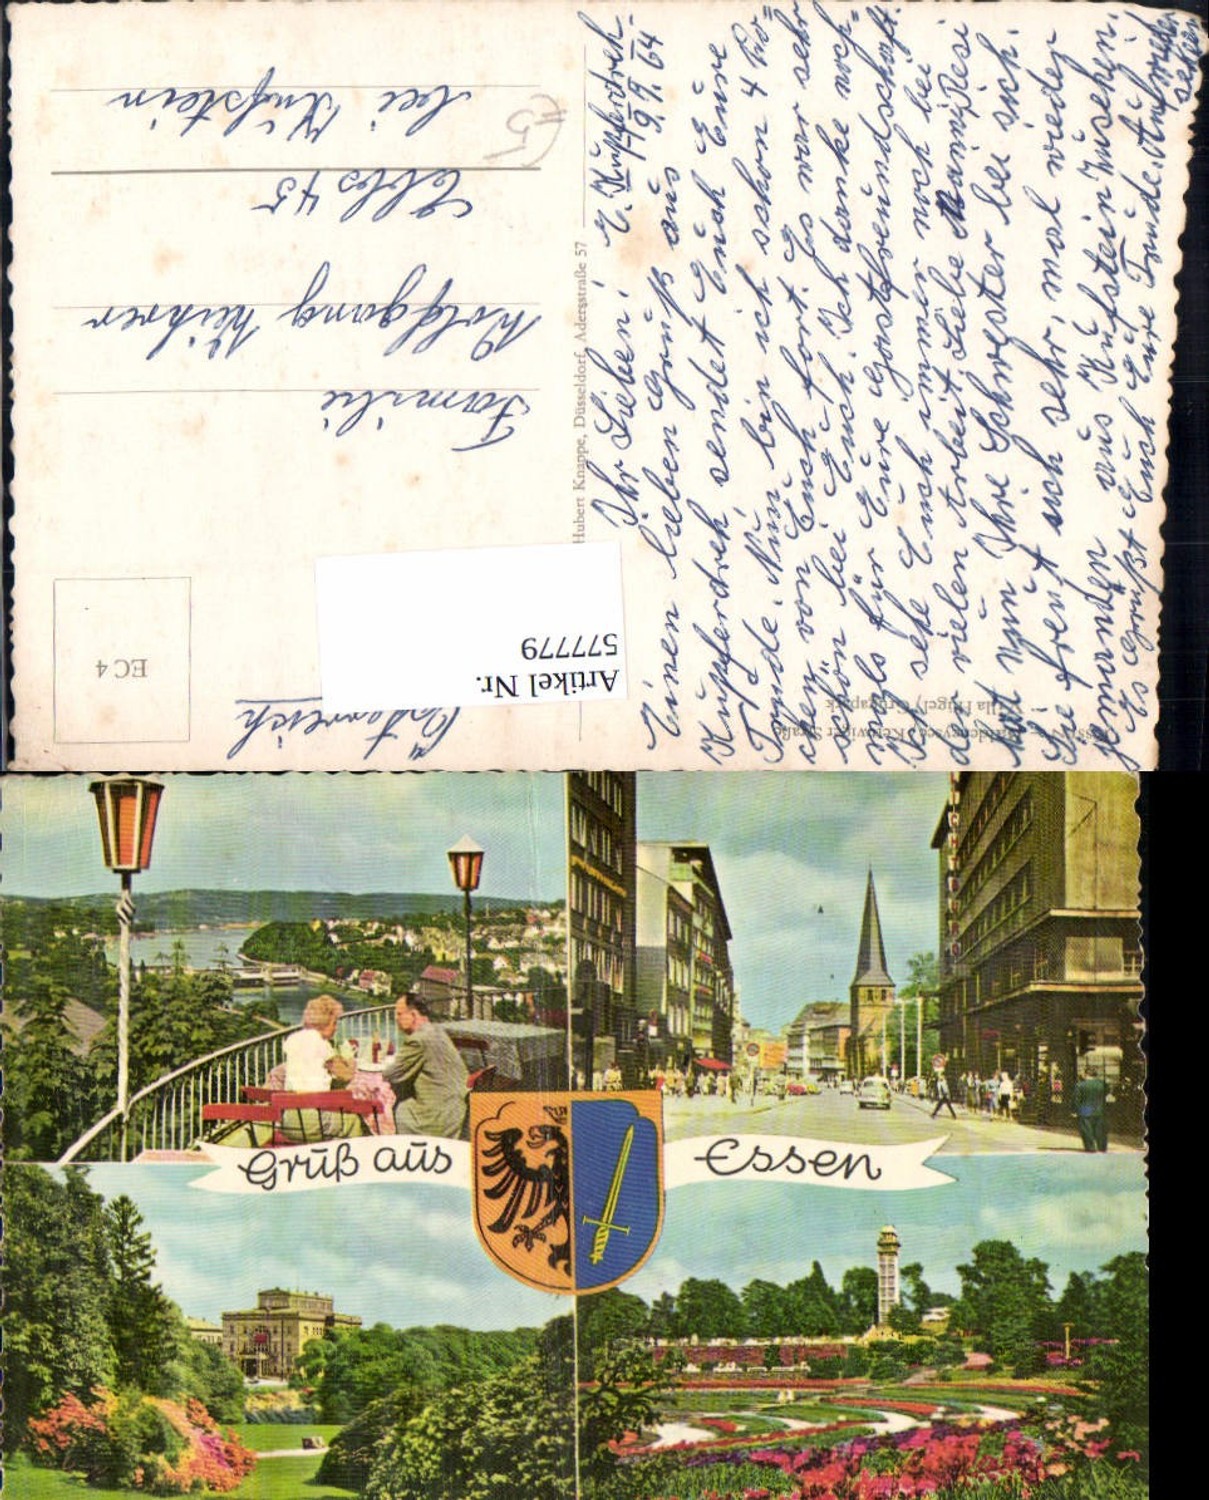 E. Kupferdreh.
9. 9. 64
Ihr Lieben!
Einen lieben Gruß aus
Kupferdreh, sendet Euch Eure
Trude. Nun bin ich schon 4 Wo=
chen von Euch fort. Es war sehr
schön bei Euch. Ich danke noch=
mals für Eure Gastfreundschaft.
Ich sehe Euch immer noch bei
der vielen Arbeit. Liebe Resi
nun Ihre Schwester bei sich.
Sie freut sich sehr, mal wieder
jemanden aus Kufstein zu sehen.
Es grüßt Euch Eure Trude. Auf Wieder
sehen
Familie
Wolfgang
Ebbs 45
bei Kufstein
Österreich
Hubert Knappe, Düsseldorf, Adersstraße 57
EC 4
Artikel Nr.
577779
Villa Hügel, Grugapark
Gruß aus Essen